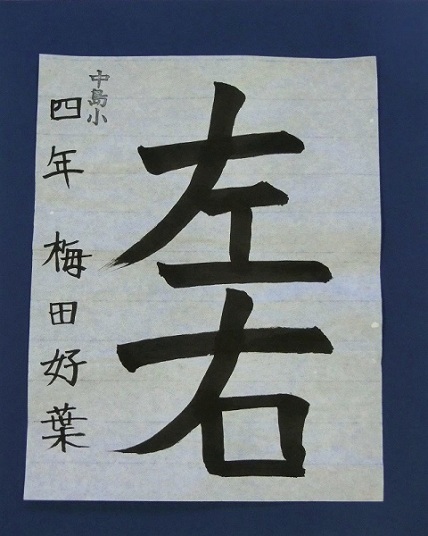 左右
中島小
四年 梅田好葉